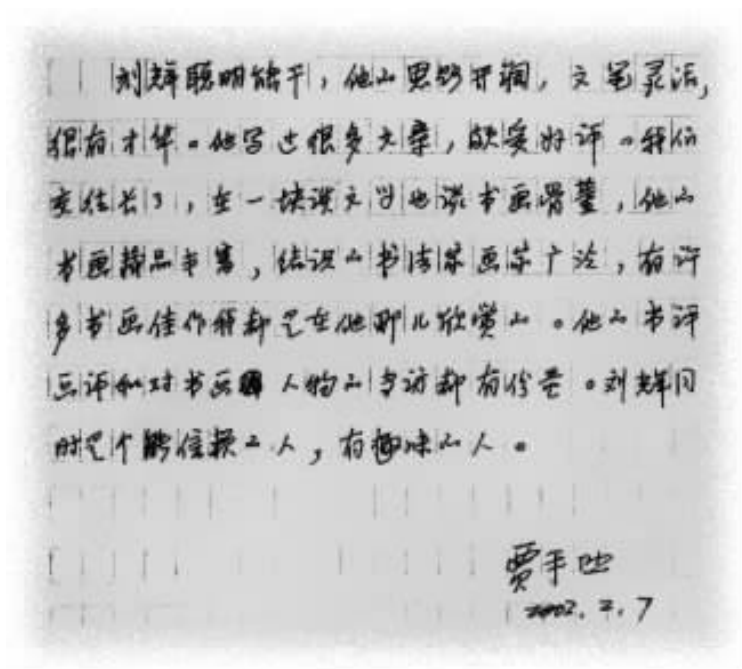 刘辉聪明能干，他的思路开阔，文笔灵活，
很有才华。他写过很多文章，颇受好评。我们
交往长了，在一块谈文学也谈书画骨董，他的
书画藏品丰富，结识的书法家画家广泛，有许
多书画佳作我都是在他那儿欣赏的。他的书评
画评和对书画人物的专访都有份量。刘辉同
时是个能信赖的人，有趣味的人。
贾平凹
2002.2.7